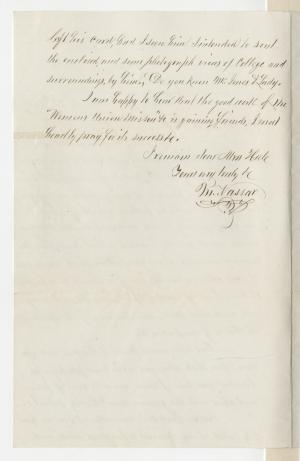 left his card, had I seen him I intended to sent
the enclosed, and some photograph views of College and
surroundings, by him, Do you know Mr Jones & Lady.
I am happy to hear that the good cause of the
Womens Union Mission is gaining friends, I most
heartly pray for its success.
I remain dear Mrs Hale
Yours very truly &c
M. Vassar